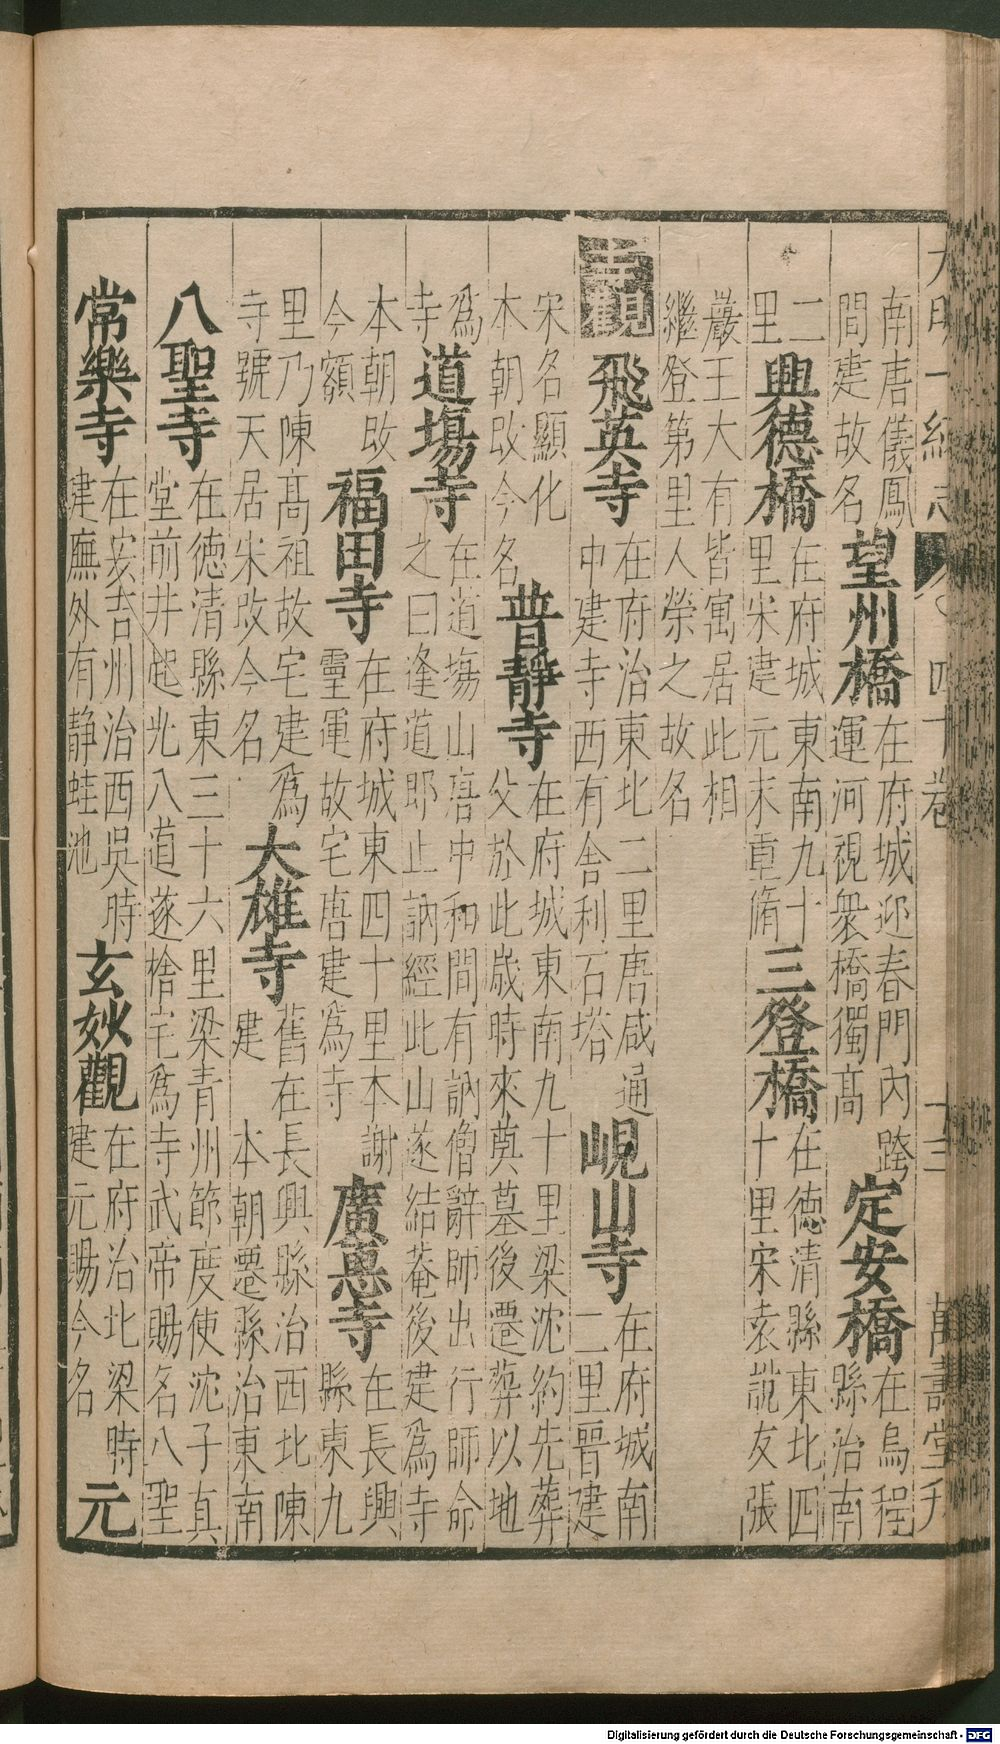 大明一統志 四十卷 十三 萬壽堂刋
南唐儀鳳間建故名 望州橋 在府城迎春門內跨運河視衆橋獨高 定安橋 在烏程縣治南
二里 興德橋 在府城東南九十里宋建元末重脩 三登橋 在德清縣東北四十里宋袁說友張
巖王大有皆寓居此相繼登第里人榮之故名
寺觀 飛英寺 在府治東北二里唐咸通中建寺西有舍利石塔 峴山寺 在府城南二里晉建
宋名顯化本朝改今名 普靜寺 在府城東南九十里梁沈約先葬父於此歲時來奠墓後遷葬以地
為寺 道塲寺 在道塲山唐中和間有訥僧辭師出行師命之曰逢道即止訥經此山遂結菴後建為寺
本朝改今額 福田寺 在府城東四十里本謝靈運故宅唐建為寺 廣惠寺 在長興縣東九
里乃陳髙祖故宅建為寺號天居宋改今名 大雄寺 舊在長興縣治西北陳建 本朝遷縣治東南
八聖寺 在德清縣東三十六里梁青州節度使沈子真堂前井起光八道遂捨宅為寺武帝賜名八聖
常樂寺 在安吉州治西吳時建廡外有靜蛙池 玄妙觀 在府治北梁時建元賜今名 元
Digitalisierung gefördert durch die Deutsche Forschungsgemeinschaft - DFG